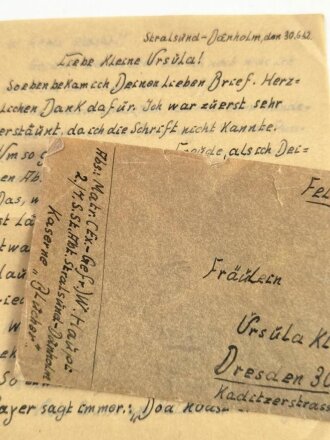 Stralsund-Dänholm, den 30.6.42.
Liebe kleine Ursula!
Soeben bekam ich Deinen lieben Brief. Herz-
lichen Dank dafür. Ich war zuerst sehr
erstaunt, da ich die Schrift nicht kannte.
Umso g Freude, als ich Dei-
nen Ab
Das, w
So
ayer sagt immer: „Doa
Abs: Matr. (Ex-Gefr.) W.
2/7. S. St. Abt. Stralsund-Dänholm
Kaserne „Blücher“.
Fel
Fräulein
Ursula Kl
Dresden 30
Kaditzerstrass